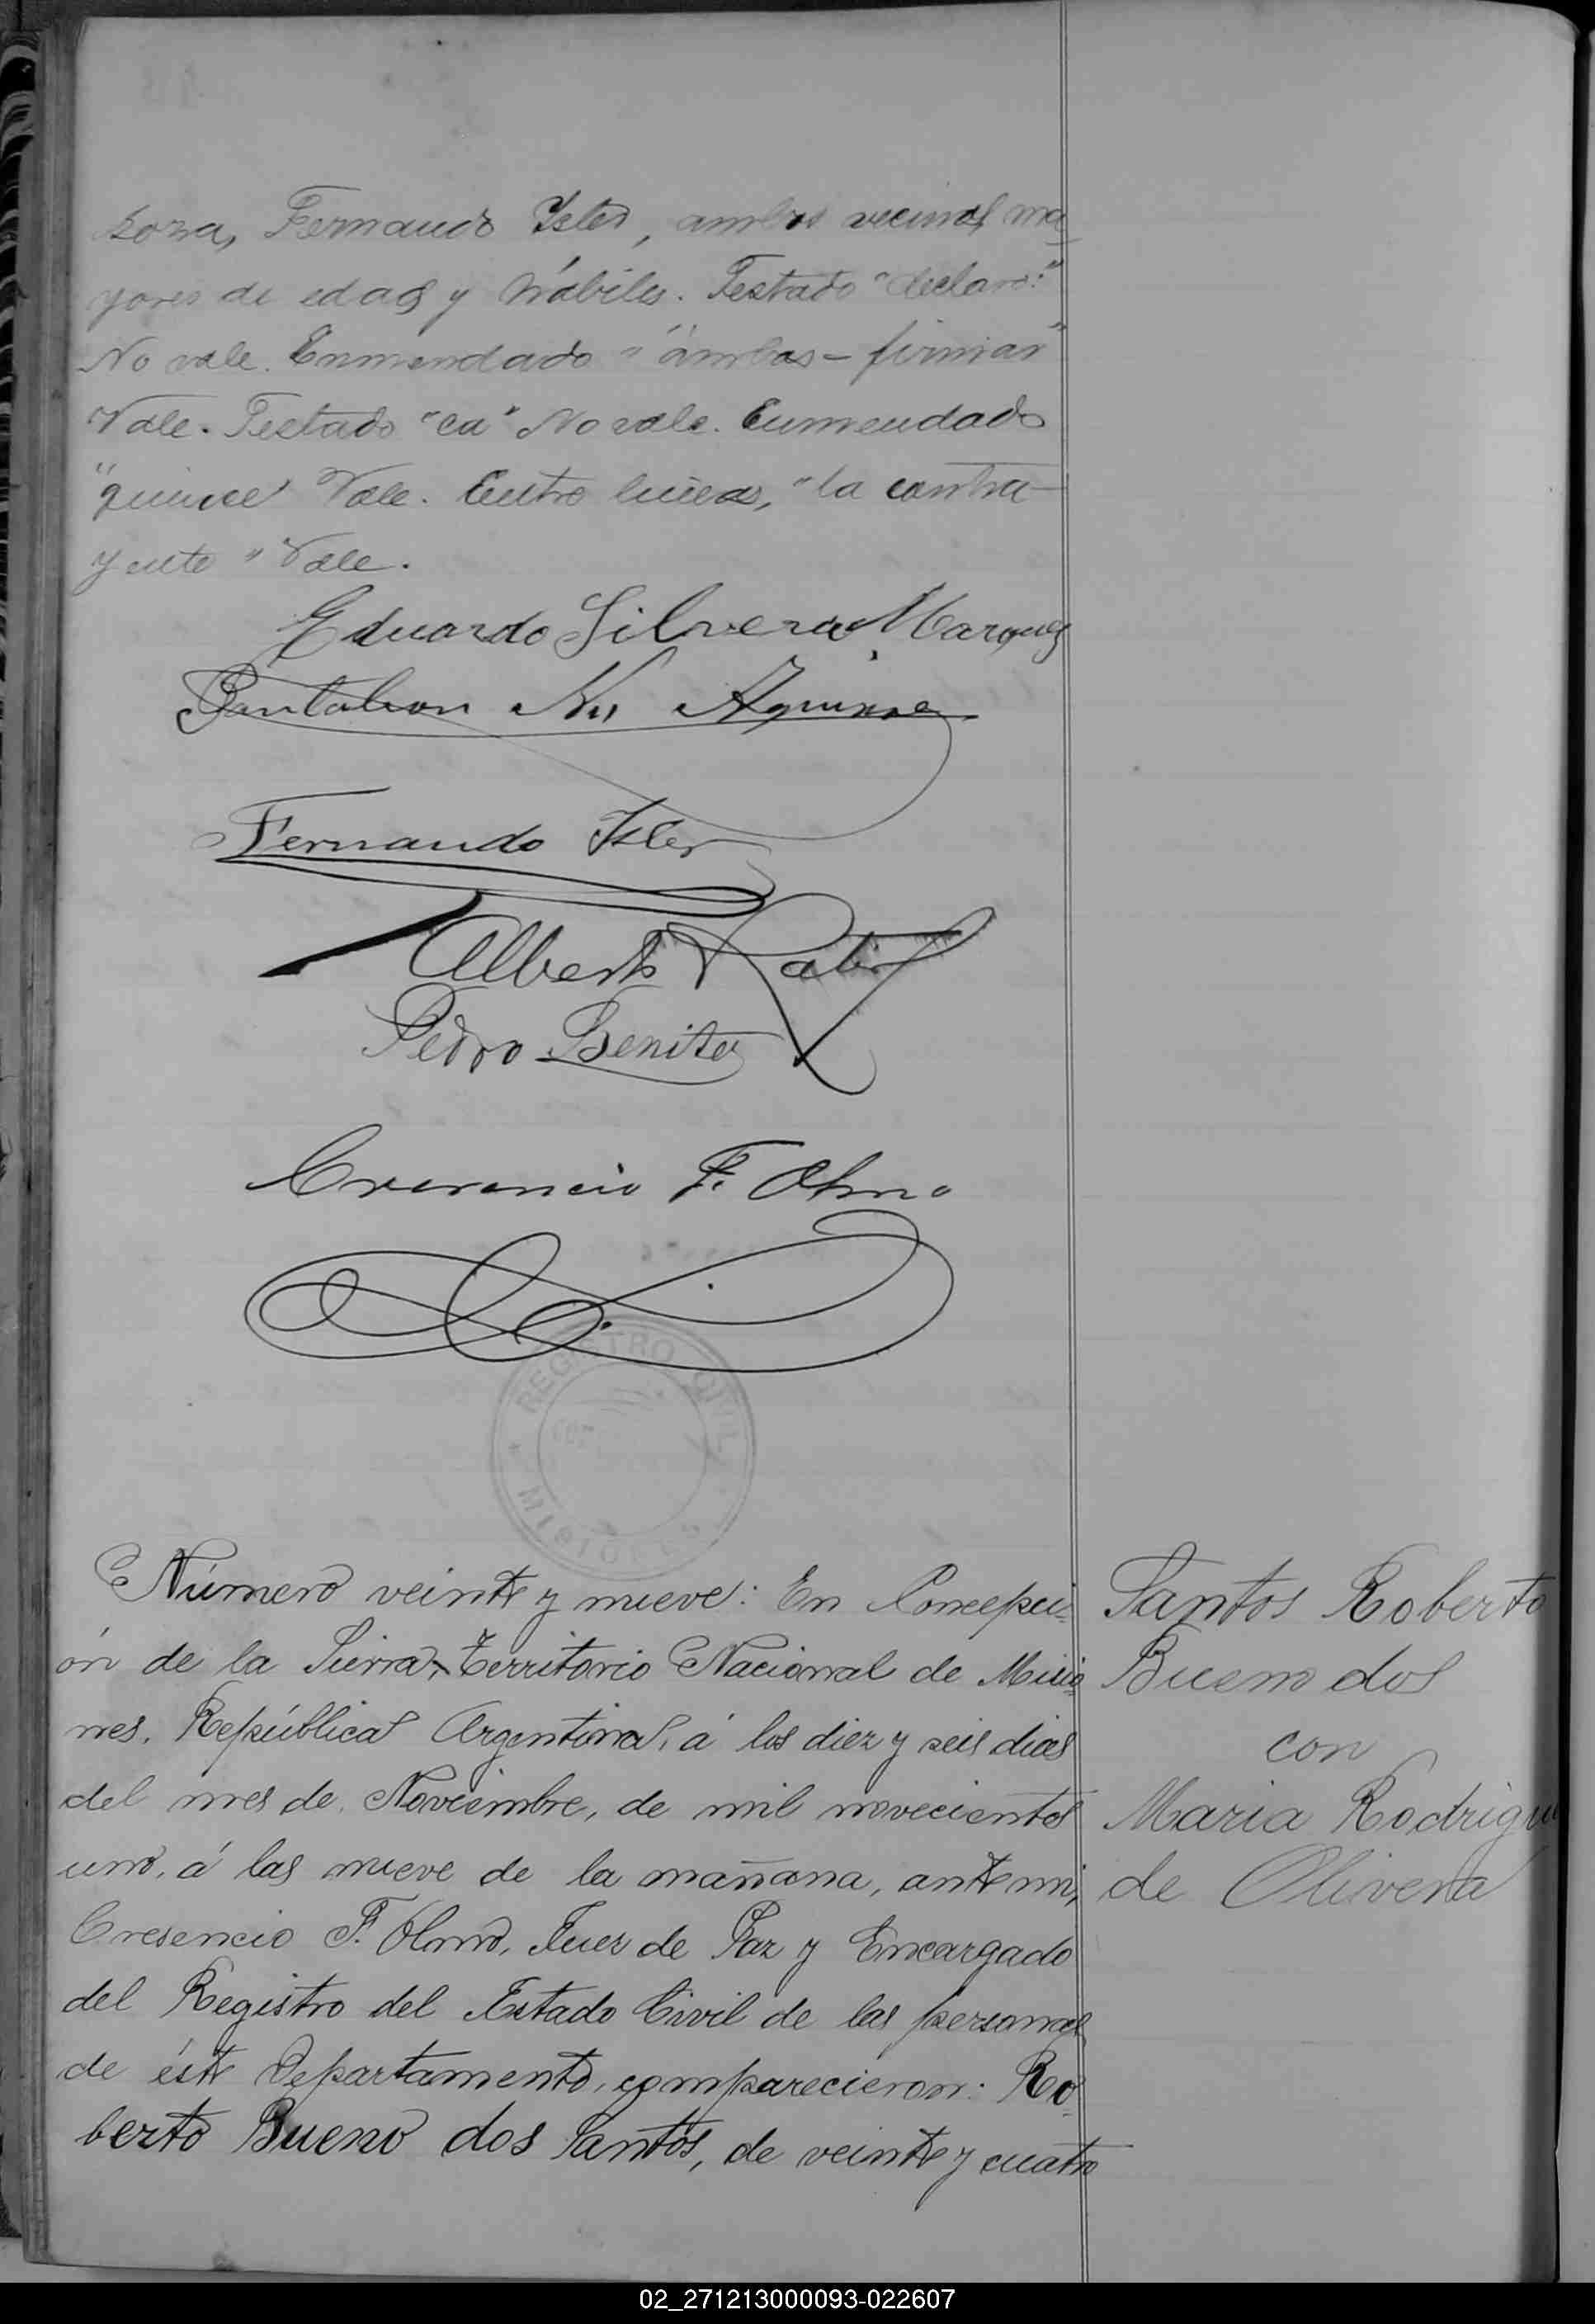 Fernando Isler, ambos vecinos, ma-
yores de edad y hábiles. Testado "declaro":
No vale. Enmendado "ambos - firmar"
Vale. Testado "ca" No vale. Enmendado
"quince" Vale. Entre lineas, "la contra-
yente" Vale.
Eduardo Silvera Marques
Pantaleon Aguirre
Fernando Isler
Alberto
Pedro Benitez
Cresencio F. Olmo
REGISTRO CIVIL
MISIONES
Número veinte y nueve: En Concepci-
ón de la Sierra, Territorio Nacional de Misio-
nes, República Argentina, á los diez y seis dias
del mes de Noviembre, de mil novecientos
uno, á las nueve de la mañana, ante mi,
Cresencio F. Olmo, Juez de Paz y Encargado
del Registro del Estado Civil de las personas
de éste Departamento, comparecieron: Ro-
berto Bueno dos Santos, de veinte y cuatro
Santos Roberto
Bueno dos
con
Maria Rodrigu
de Olivera
02_271213000093-022607